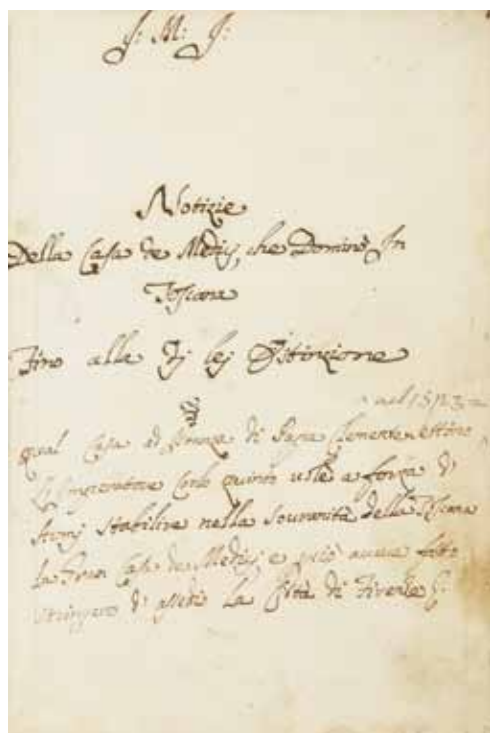 J: M: J:
Notizie
Della Casa de Medicj, che Dominò In
Toscana
Fino alla di lej Estinzione
nel 1523
qual Casa ad istanza di Papa Clemente settimo
L'Imperatore Carlo quinto volle a forza d'
Armj stabilire nella Souranità della Toscana
la Casa de Medicj, e perciò aueua fatto
stringere d'assedio La Città di Firenze